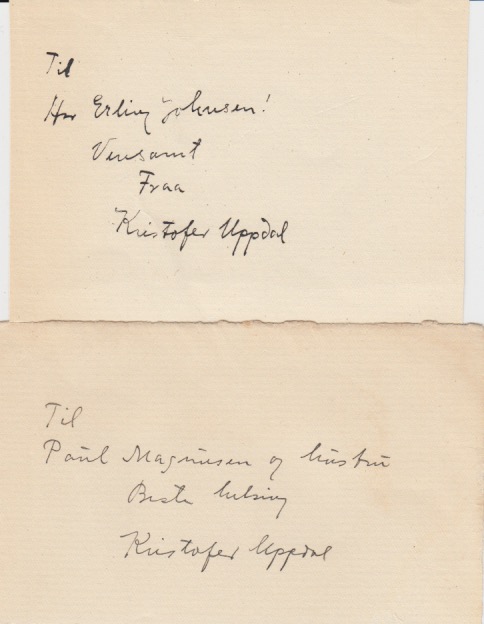 Til
Hr Erling Johnsen!
Vensamt
Fraa
Kristofer Uppdal
Til
Paul Magnusen og hustru
Beste helsing
Kristofer Uppdal